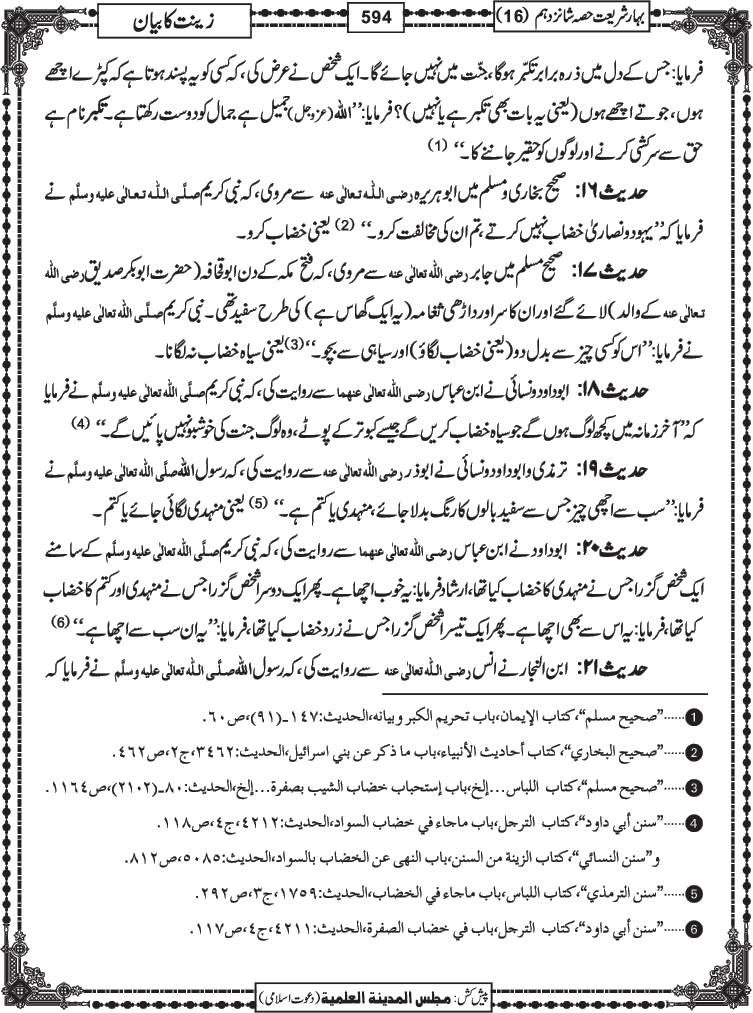 بہار شریعت حصہ شانزدہم (16)
594
زینت کا بیان
فرمایا: جس کے دل میں ذرہ برابر تکبّر ہوگا، جنّت میں نہیں جائے گا۔ ایک شخص نے عرض کی، کہ کسی کو یہ پسند ہوتا ہے کہ کپڑے اچھے
ہوں، جوتے اچھے ہوں (یعنی یہ بات بھی تکبر ہے یا نہیں)؟ فرمایا: ’’اﷲ (عزوجل) جمیل ہے جمال کو دوست رکھتا ہے۔ تکبر نام ہے
حق سے سرکشی کرنے اور لوگوں کو حقیر جاننے کا۔‘‘ (1)
حدیث ۱۶: صحیح بخاری و مسلم میں ابوہریرہ رضی اللہ تعالٰی عنہ سے مروی، کہ نبی کریم صلَّی اللہ تعالٰی علیہ وسلَّم نے
فرمایا کہ ’’یہود و نصاریٰ خضاب نہیں کرتے، تم ان کی مخالفت کرو۔‘‘ (2) یعنی خضاب کرو۔
حدیث ۱۷: صحیح مسلم میں جابر رضی اللہ تعالٰی عنہ سے مروی، کہ فتح مکہ کے دن ابوقحافہ (حضرت ابوبکر صدیق رضی اللہ
تعالٰی عنہ کے والد) لائے گئے اور ان کا سر اور داڑھی ثغامہ (یہ ایک گھاس ہے) کی طرح سفید تھی۔ نبی کریم صلَّی اللہ تعالٰی علیہ وسلَّم
نے فرمایا: ’’اس کو کسی چیز سے بدل دو (یعنی خضاب لگاؤ) اور سیاہی سے بچو۔‘‘(3) یعنی سیاہ خضاب نہ لگانا۔
حدیث ۱۸: ابوداود و نسائی نے ابن عباس رضی اللہ تعالٰی عنہما سے روایت کی، کہ نبی کریم صلَّی اللہ تعالٰی علیہ وسلَّم نے فرمایا
کہ ’’آخر زمانہ میں کچھ لوگ ہوں گے جو سیاہ خضاب کریں گے جیسے کبوتر کے پوٹے، وہ لوگ جنت کی خوشبو نہیں پائیں گے۔‘‘ (4)
حدیث ۱۹: ترمذی و ابوداود و نسائی نے ابوذر رضی اللہ تعالٰی عنہ سے روایت کی، کہ رسول اﷲ صلَّی اللہ تعالٰی علیہ وسلَّم نے
فرمایا: ’’سب سے اچھی چیز جس سے سفید بالوں کا رنگ بدلا جائے، منہدی یا کتم ہے۔‘‘ (5) یعنی منہدی لگائی جائے یا کتم۔
حدیث ۲۰: ابوداود نے ابن عباس رضی اللہ تعالٰی عنہما سے روایت کی، کہ نبی کریم صلَّی اللہ تعالٰی علیہ وسلَّم کے سامنے
ایک شخص گزرا جس نے منہدی کا خضاب کیا تھا، ارشاد فرمایا: یہ خوب اچھا ہے۔ پھر ایک دوسرا شخص گزرا جس نے منہدی اور کتم کا خضاب
کیا تھا، فرمایا: یہ اس سے بھی اچھا ہے۔ پھر ایک تیسرا شخص گزرا جس نے زرد خضاب کیا تھا، فرمایا: ’’یہ ان سب سے اچھا ہے۔‘‘ (6)
حدیث ۲۱: ابن النجار نے انس رضی اللہ تعالٰی عنہ سے روایت کی، کہ رسول اﷲ صلَّی اللہ تعالٰی علیہ وسلَّم نے فرمایا کہ
1 ......’’صحیح مسلم‘‘، کتاب الإیمان، باب تحریم الکبر وبیانہ، الحدیث: ۱۴۷۔(۹۱)، ص۶۰.
2 ......’’صحیح البخاري‘‘، کتاب أحادیث الأنبیاء، باب ما ذکر عن بني اسرائیل، الحدیث: ۳۴۶۲، ج۲، ص۴۶۲.
3 ......’’صحیح مسلم‘‘، کتاب اللباس...إلخ، باب إستحباب خضاب الشیب بصفرة...إلخ، الحدیث: ۸۰۔(۲۱۰۲)، ص۱۱۶۴.
4 ......’’سنن أبي داود‘‘، کتاب الترجل، باب ماجاء في خضاب السواد، الحدیث: ۴۲۱۲، ج۴، ص۱۱۸.
و’’سنن النسائي‘‘، کتاب الزینة من السنن، باب النھی عن الخضاب بالسواد، الحدیث: ۵۰۸۵، ص۸۱۲.
5 ......’’سنن الترمذي‘‘، کتاب اللباس، باب ماجاء في الخضاب، الحدیث: ۱۷۵۹، ج۳، ص۲۹۲.
6 ......’’سنن أبي داود‘‘، کتاب الترجل، باب في خضاب الصفرة، الحدیث: ۴۲۱۱، ج۴، ص۱۱۷.
پیش کش: مجلس المدینة العلمیة (دعوت اسلامی)